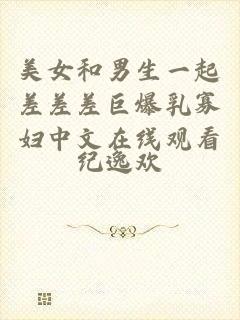 美女和男生一起
差差差巨爆乳寡
妇中文在线观看
纪逸欢